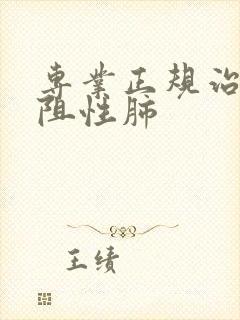 專業正規治
阻性肺
王绩